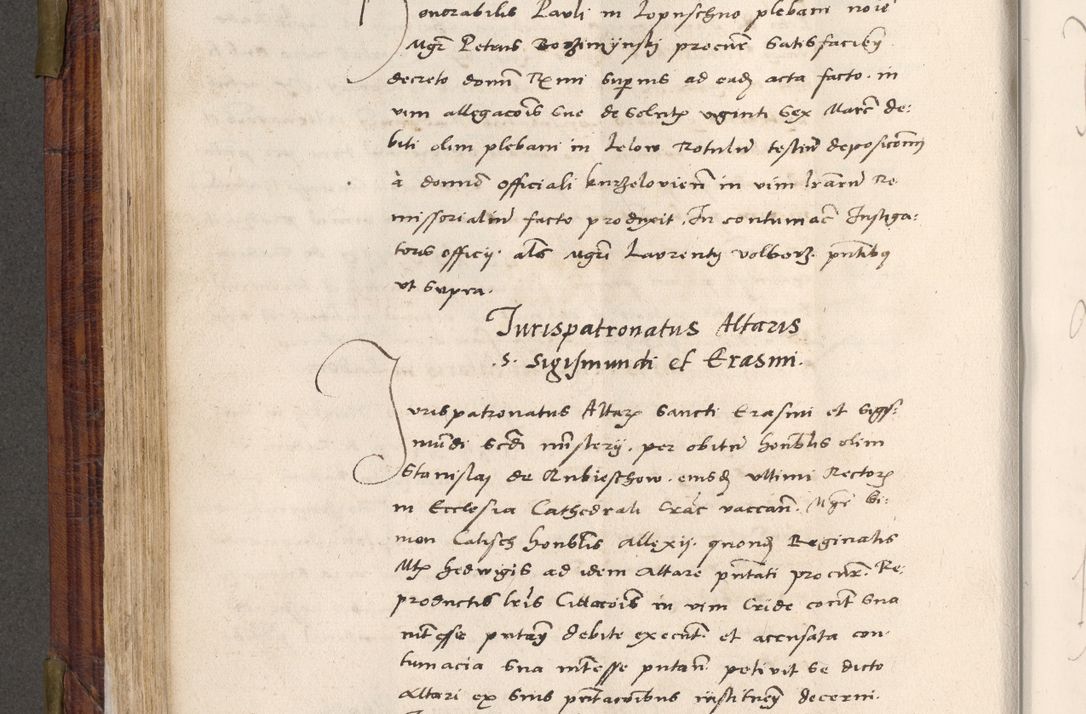 Honorabilis Pauli in Lopuschno plebani noie
Mgr Petrus Borzimynskj procur satisfaciẽ
decreto domi Rmi superius ad eadẽ acta facto in
vim allegacois sue de solutis viginti sex Marc̃ de-
biti olim plebani in Lelow Rotulũ testiũ depositionũ
à domno officiali kurzelovieñ in vim lrarũ Re
missorialiũ facto produxit. In contumac̃ Instiga-
toris officij. als Mgri Laurentij volborz. pntibus
ut supra.
Jurispatronatus Altaris
.S. Sigismundi et Erasmi.
Jurispatronatus Altaris sancti Erasmi et Sigis-
mũdi scdi mĩsterij. per obitũ honblis olim
Stanislaj de Rubieschow. eiusdẽ ultimi Rectoris
in Ecclesia Cathedrali Crac̃ vaccañ. Mgr Si-
mon Calisch honblis Allexij. quondã Reginalis
Mtis hedwigis ad idem Altare pñtati procur. Re
productis lris Cittacois in vim Cride cont̃ sua
intesse putañ debite execut̃. et accusata con-
tumacia sua intesse putañ petivit se dicto
Altari ex suis pñtacionibus institueñ decerni.